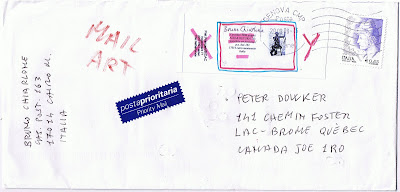 MAIL
ART
BRUNO CHIARLONE
CAS. POST. 163
17014 CAIRO M.
ITALIA
postaprioritaria
Priority Mail
Bruno Chiarlone
GENOVA CMP
ITALIA
PETER DOWKER
141 CHEMIN FOSTER
LAC-BROME QUÉBEC
CANADA JOE 1RO